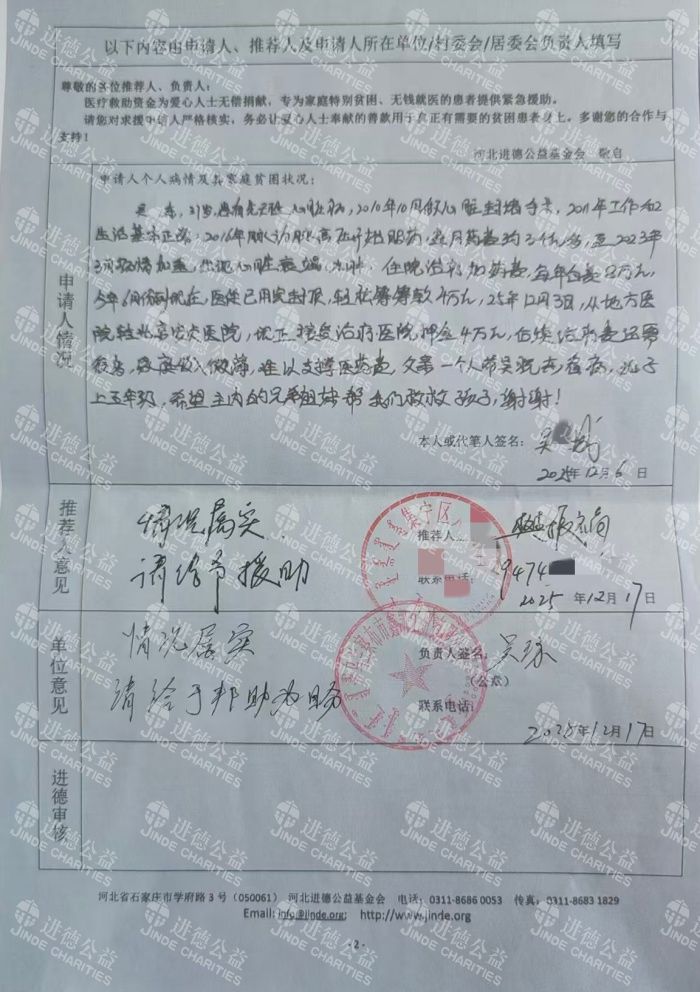 以下内容由申请人、推荐人及申请人所在单位/村委会/居委会负责人填写
尊敬的各位推荐人、负责人：
医疗救助资金为爱心人士无偿捐献，专为家庭特别贫困、无钱就医的患者提供紧急援助。
请您对求援申请人严格核实，务必让爱心人士奉献的善款用于真正有需要的贫困患者身上。多谢您的合作与
支持！
河北进德公益基金会 敬启
申请人情况
申请人个人病情及其家庭贫困状况：
吴 31岁患有先天性心脏病，2010年10月做心脏封堵手术，2011年工作和
生活基本正常，2016年肺动脉高压开始服药，每月药费约3仟多，至2023年
3月病情加重，出现心脏衰竭 住院治疗加药费，每年合计8万元，
今年6月份到现在，医保已用完封顶，轻松筹筹款4万元，25年12月3日，从地方医
院转北京 医院，现正接受治疗医院押金4万元，后续治疗费还需
很多，家庭收入微薄，难以支撑医药费，父亲一人带吴 看病，儿子
上五年级，希望主内的兄弟姐妹帮我们救救孩子，谢谢！
本人或代笔人签名： 吴
2025年12月6日
推荐人意见
情况属实
请给予援助
集宁区
推荐人
联系电话： 9474
2025年12月17日
单位意见
情况属实
请给于邦助为盼
负责人签名：
（公章）
联系电话：
2025年12月17日
进德审核
河北省石家庄市学府路3号（050061） 河北进德公益基金会 电话：0311-8686 0053 传真：0311-8683 1829
Email: info@jinde.org; http://www.jinde.org
-2-
进德公益
JINDE CHARITIES